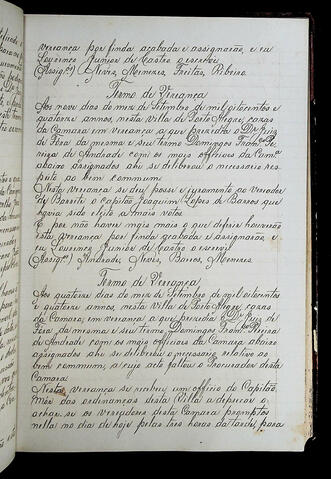 vereança por finda acabada e assignarão, e eu
Lourenço Junior de Castro o escrevi
(Assig.os) Neves, Menezes, Freitas, Ribeiro
Termo de Vereança
Aos nove dias do mez de Setembro de mil oitocentos e
quatorze annos, nesta villa de Porto Alegre, cazas
da Camara em vereança a que prezidio o Dr. Juiz
de Fora da mesma e seu termo Domingos Pe-
reira de Andrade com os mais officiaes da Camr.a
abaixo assignados ahi se deliberou o necessario res-
peito ao bem commum.
Nesta vereança se deu posse e juramento ao vereador
de Barrete o capitão Joaquim Lopes de Barros que
havia sido eleito a mais votos.
E por não haver mais mais o que deferir houverão
esta vereança por finda acabada e assignarão e
eu Lourenço Junior de Castro o escrevi
(Assig.os) Andrade, Neves, Barros, Menezes
Termo de Vereança
Aos quatorze dias do mez de Setembro de mil oitocentos
e quatorze annos, nesta villa de Porto Alegre cazas
da Camara, em vereança a que prezidio o Dr. Juiz de
Fora, da mesma e seu Termo, Domingos Pereira
de Andrade com os mais officiaes da Camara, abaixo
assignados ahi se deliberou o necessario relativo ao
bem commum, a cujo acto faltou o Procurador desta
Camara.
Nesta vereança se recebeu um officio do Capitão
Mór das ordenanças desta Villa a
achar se os vereadores desta Camara promptos
nella no dia de hoje pelas tres horas da tarde, para